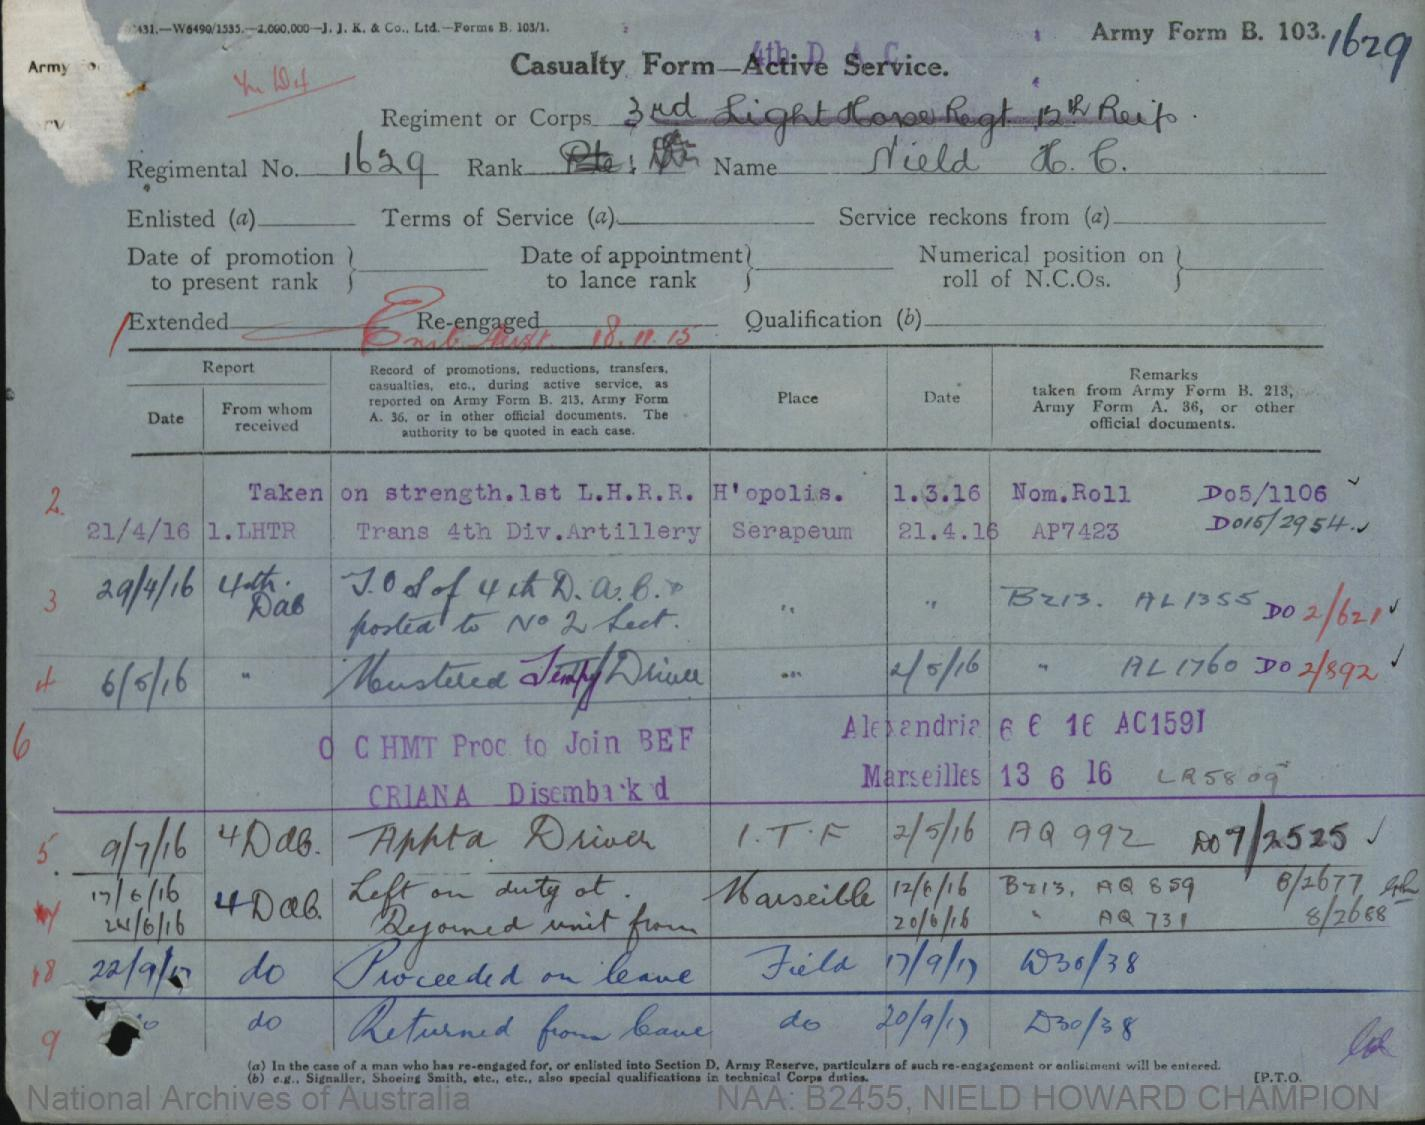 431.—W6490/1535.—2,000,000—J. J. K. & Co., Ltd.—Forms B. 103/1.
Army Form B. 103.
1629
Army
4th D A C
Casualty Form—Active Service.
Regiment or Corps 3rd Light Horse Regt 12th Reifs.
Regimental No. 1629 Rank Pte Name Nield H. C.
Enlisted (a) Terms of Service (a) Service reckons from (a)
Date of promotion to present rank } Date of appointment to lance rank } Numerical position on roll of N.C.Os. }
Extended Re-engaged Qualification (b)
Emb. Aust. 18.11.15
Report
Date
From whom received
Record of promotions, reductions, transfers,
casualties, etc., during active service, as
reported on Army Form B. 213, Army Form
A. 36, or in other official documents. The
authority to be quoted in each case.
Place
Date
Remarks
taken from Army Form B. 213,
Army Form A. 36, or other
official documents.
2. Taken on strength.1st L.H.R.R. H'opolis. 1.3.16 Nom.Roll DO5/1106
21/4/16 1.LHTR Trans 4th Div.Artillery Serapeum 21.4.16 AP7423 DO15/2954
3 29/4/16 4th. Dac T.O.S of 4th D.A.C. &
posted to No 2 Sect. " " B213. AL1355 DO 2/621
4 6/5/16 " Mustered Tempy Driver " 2/5/16 " AL1760 DO 2/892
6 O C HMT Proc to Join BEF Alexandria 6 6 16 AC1591
CRIANA Disembarkd Marseilles 13 6 16 LR5809
5. 9/7/16 4 Dac. Apptd Driver I.T.F 2/5/16 AQ 992 DO9/2525
17/6/16 4 Dac. Left on duty at Marseille 12/6/16 B213, AQ 859 8/2677
24/6/16 Rejoined unit from 20/6/16 " AQ 731 8/2688
18 22/9/17 do Proceeded on leave Field 17/9/17 D30/38
9 do do Returned from leave do 20/9/17 D30/38
(a) In the case of a man who has re-engaged for, or enlisted into Section D, Army Reserve, particulars of such re-engagement or enlistment will be entered.
(b) e.g., Signaller, Shoeing Smith, etc., etc., also special qualifications in technical Corps duties.
[P.T.O.
National Archives of Australia NAA: B2455, NIELD HOWARD CHAMPION